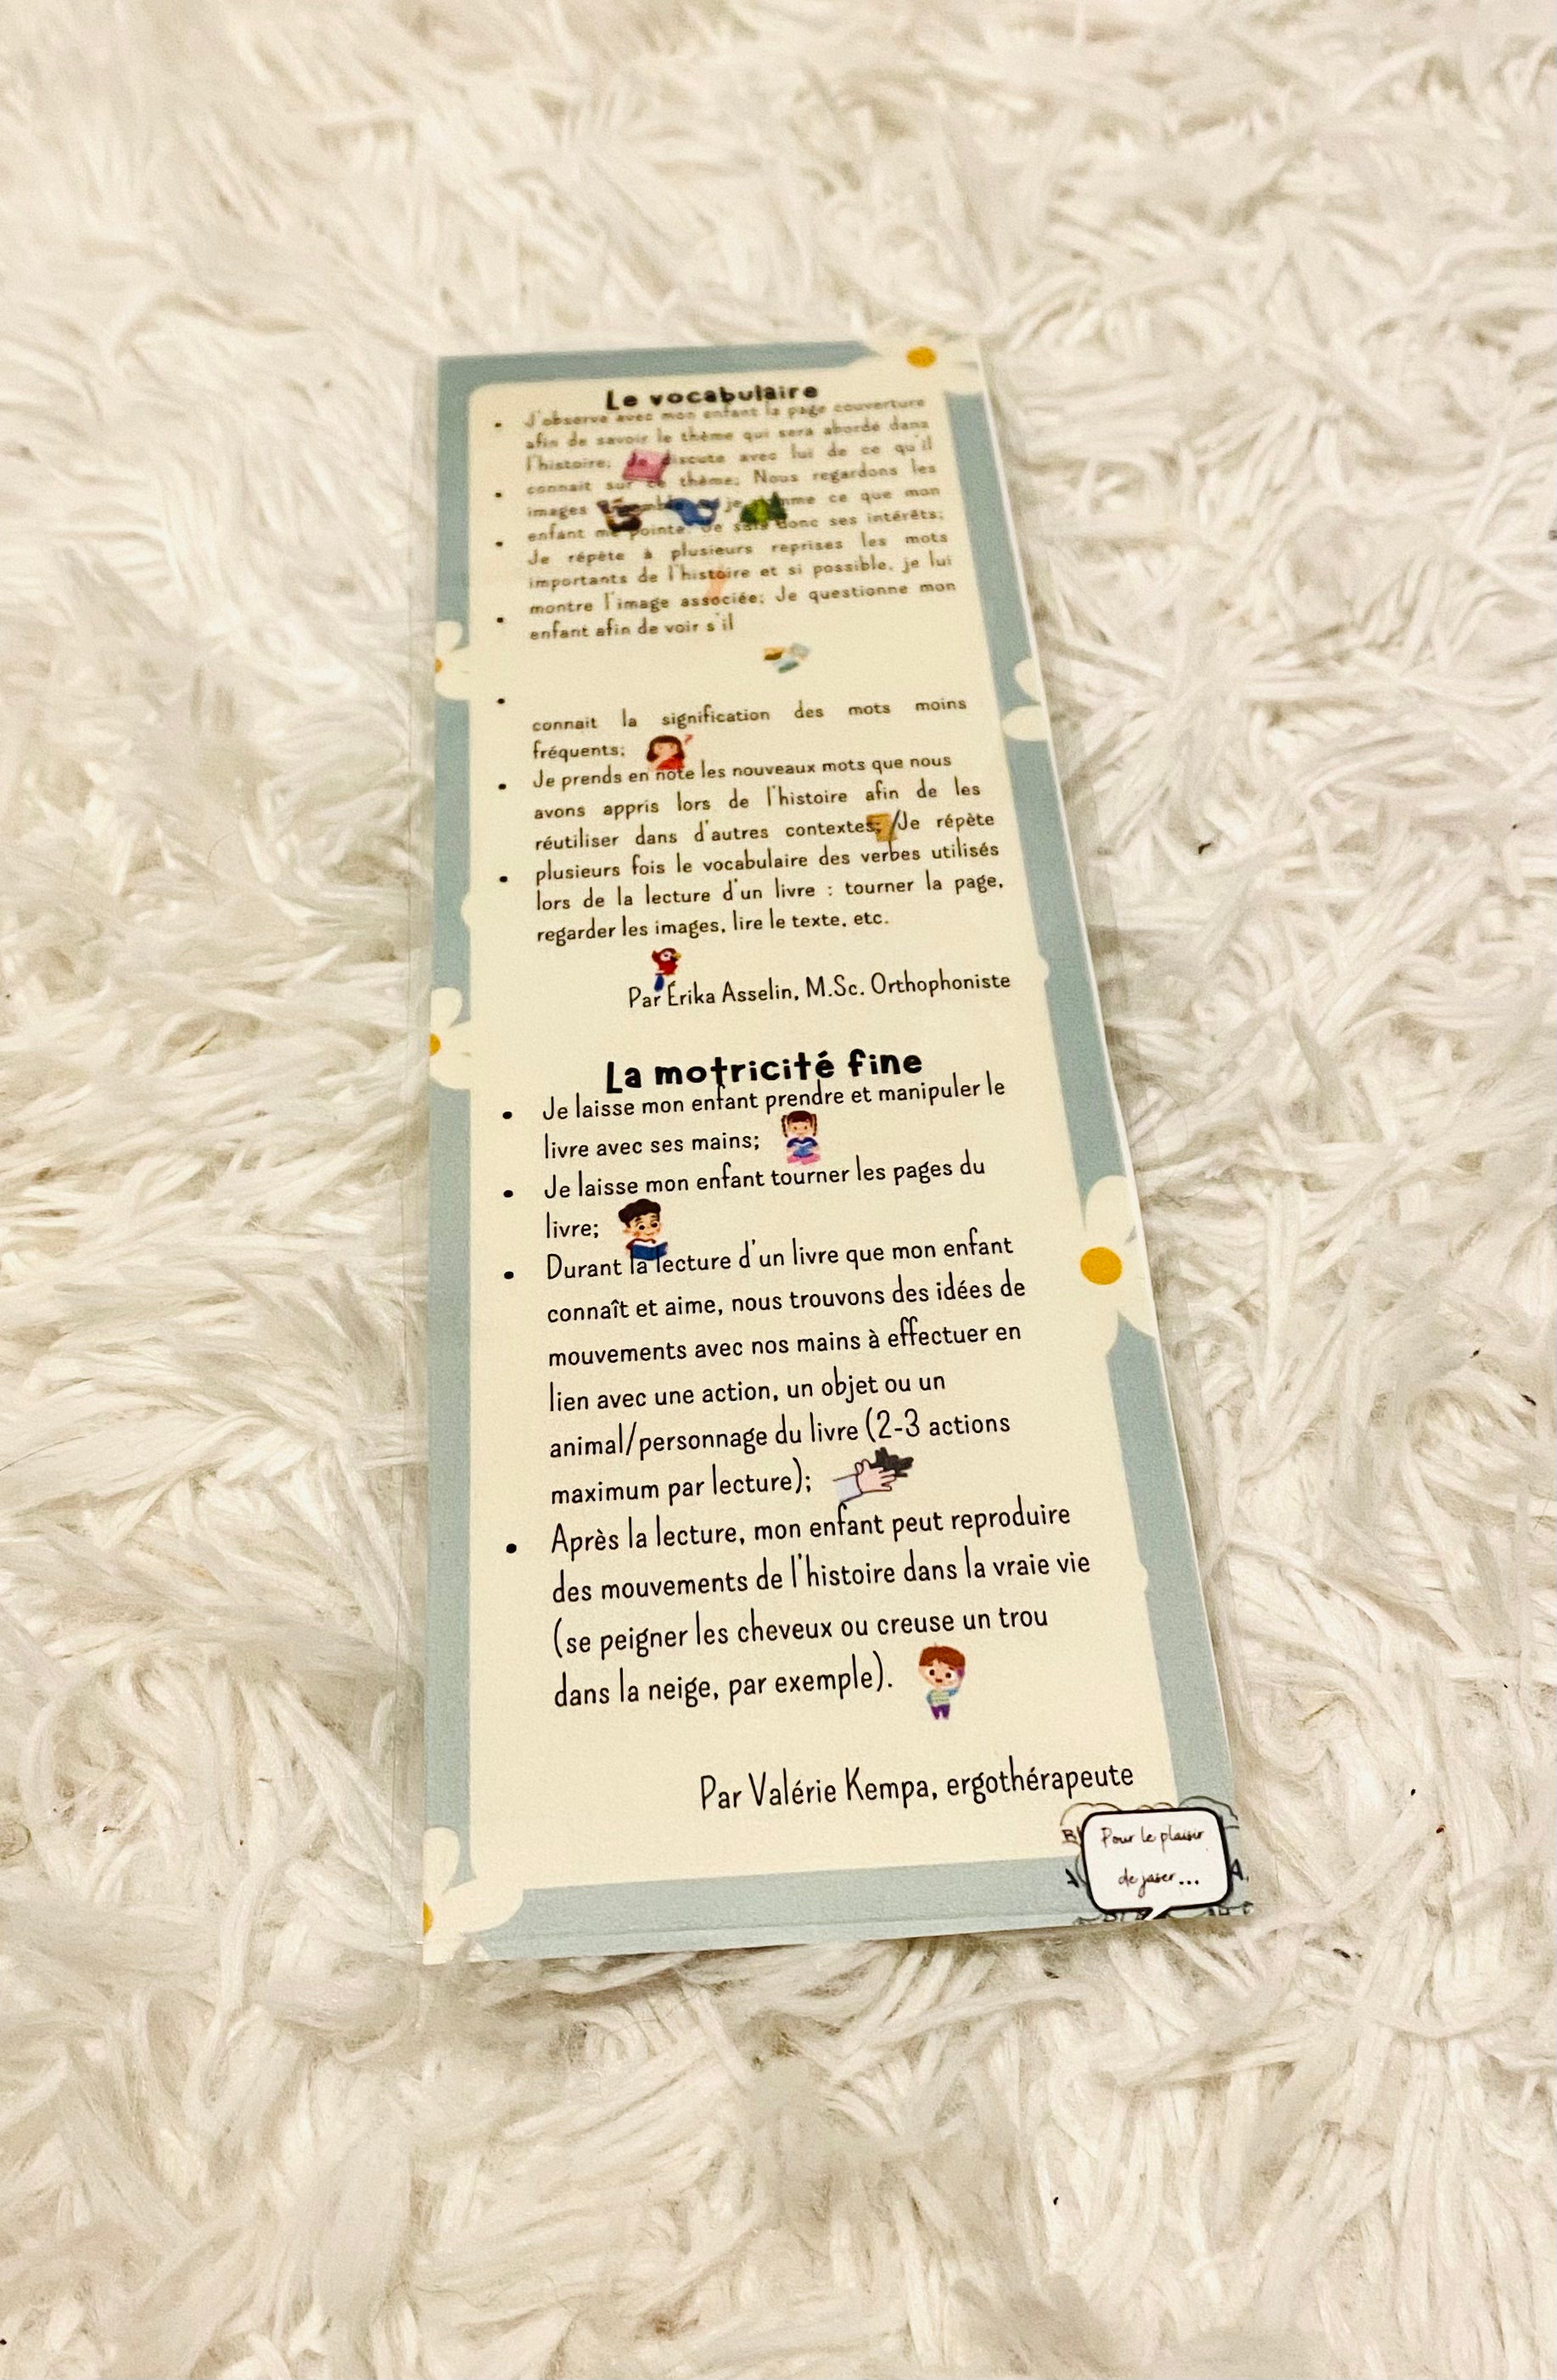 Le vocabulaire
• J'observe avec mon enfant la page couverture
afin de savoir le thème qui sera abordé dans
l'histoire; Je discute avec lui de ce qu'il
• connait sur ce thème; Nous regardons les
images ensemble et je nomme ce que mon
• enfant me pointe. Je sais donc ses intérêts;
Je répète à plusieurs reprises les mots
importants de l'histoire et si possible, je lui
• montre l'image associée; Je questionne mon
enfant afin de voir s'il
•
connait la signification des mots moins
fréquents;
• Je prends en note les nouveaux mots que nous
avons appris lors de l'histoire afin de les
réutiliser dans d'autres contextes; Je répète
• plusieurs fois le vocabulaire des verbes utilisés
lors de la lecture d'un livre : tourner la page,
regarder les images, lire le texte, etc.
Par Érika Asselin, M.Sc. Orthophoniste
La motricité fine
• Je laisse mon enfant prendre et manipuler le
livre avec ses mains;
• Je laisse mon enfant tourner les pages du
livre;
• Durant la lecture d'un livre que mon enfant
connaît et aime, nous trouvons des idées de
mouvements avec nos mains à effectuer en
lien avec une action, un objet ou un
animal/personnage du livre (2-3 actions
maximum par lecture);
• Après la lecture, mon enfant peut reproduire
des mouvements de l'histoire dans la vraie vie
(se peigner les cheveux ou creuse un trou
dans la neige, par exemple).
Par Valérie Kempa, ergothérapeute
Pour le plaisir
de jaser...